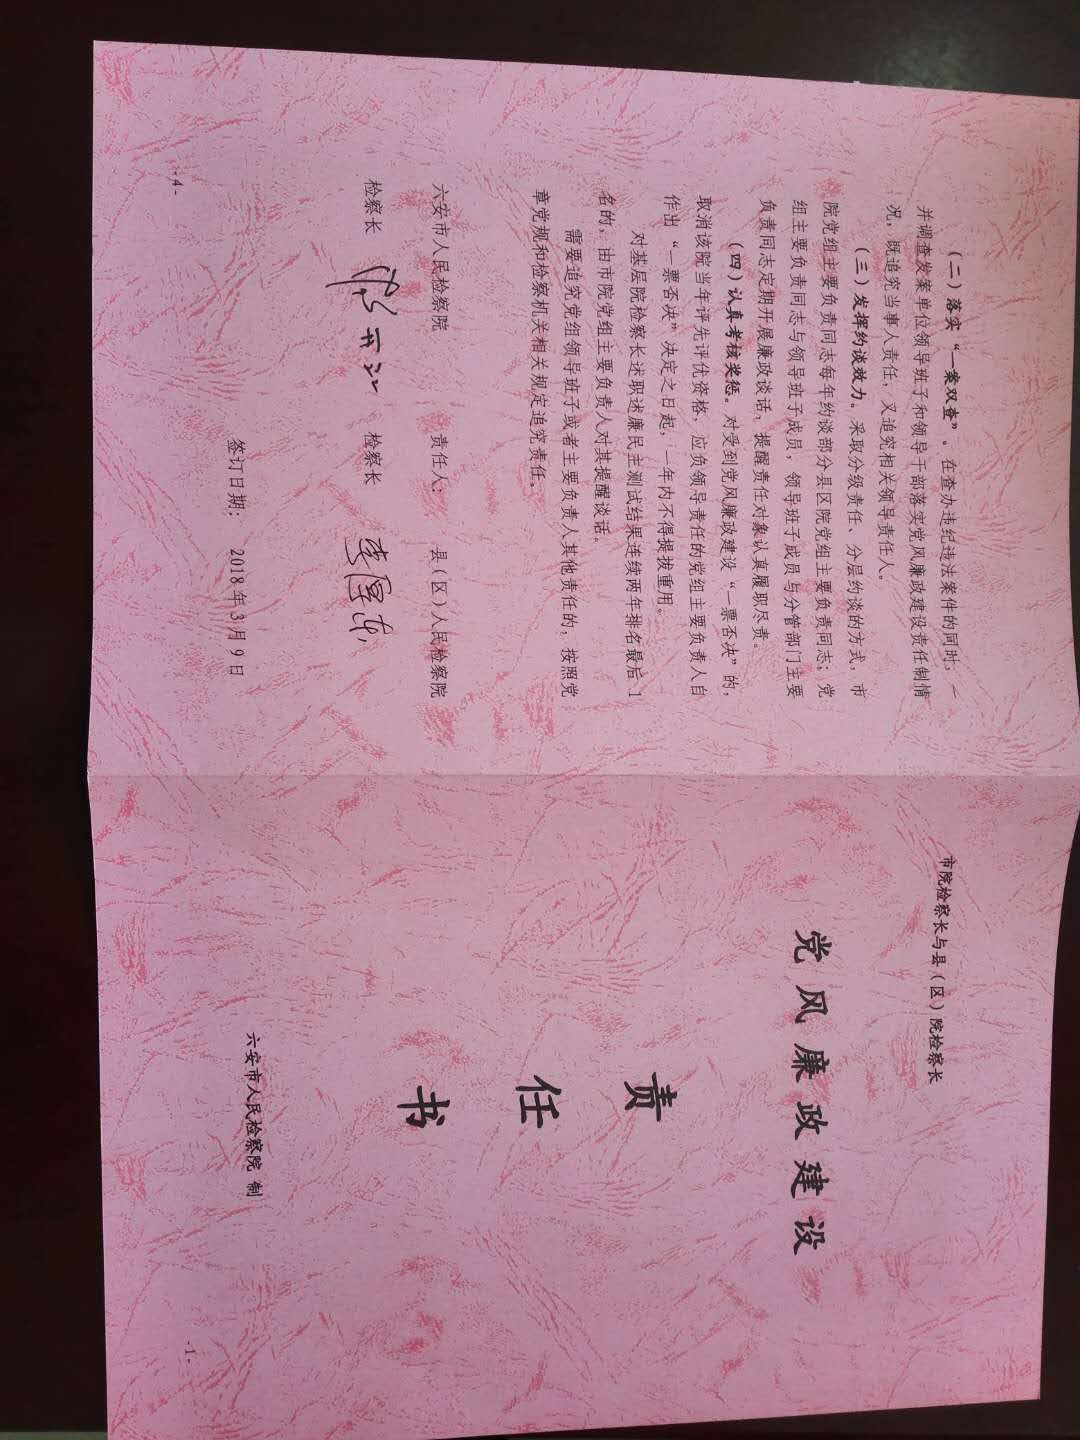 （二）落实“一案双查”。在查办违纪违法案件的同时，一
并调查发案单位领导班子和领导干部落实党风廉政建设责任制情
况，既追究当事人责任，又追究相关领导责任人。
（三）发挥约谈效力。采取分级责任、分层约谈的方式，市
院党组主要负责同志每年约谈部分县区院党组主要负责同志；党
组主要负责同志与领导班子成员，领导班子成员与分管部门主要
负责同志定期开展廉政谈话，提醒责任对象认真履职尽责。
（四）认真考核奖惩。对受到党风廉政建设“一票否决”的，
取消该院当年评先评优资格，应负领导责任的党组主要负责人自
作出“一票否决”决定之日起，一年内不得提拔重用。
对基层院检察长述职述廉民主测试结果连续两年排名最后1
名的，由市院党组主要负责人对其提醒谈话。
需要追究党组领导班子或者主要负责人其他责任的，按照党
章党规和检察机关相关规定追究责任。
六安市人民检察院 责任人： 县（区）人民检察院
检察长 检察长
签订日期： 2018年3月9日
-4-
市院检察长与县（区）院检察长
党风廉政建设
责
任
书
六安市人民检察院 制
-1-